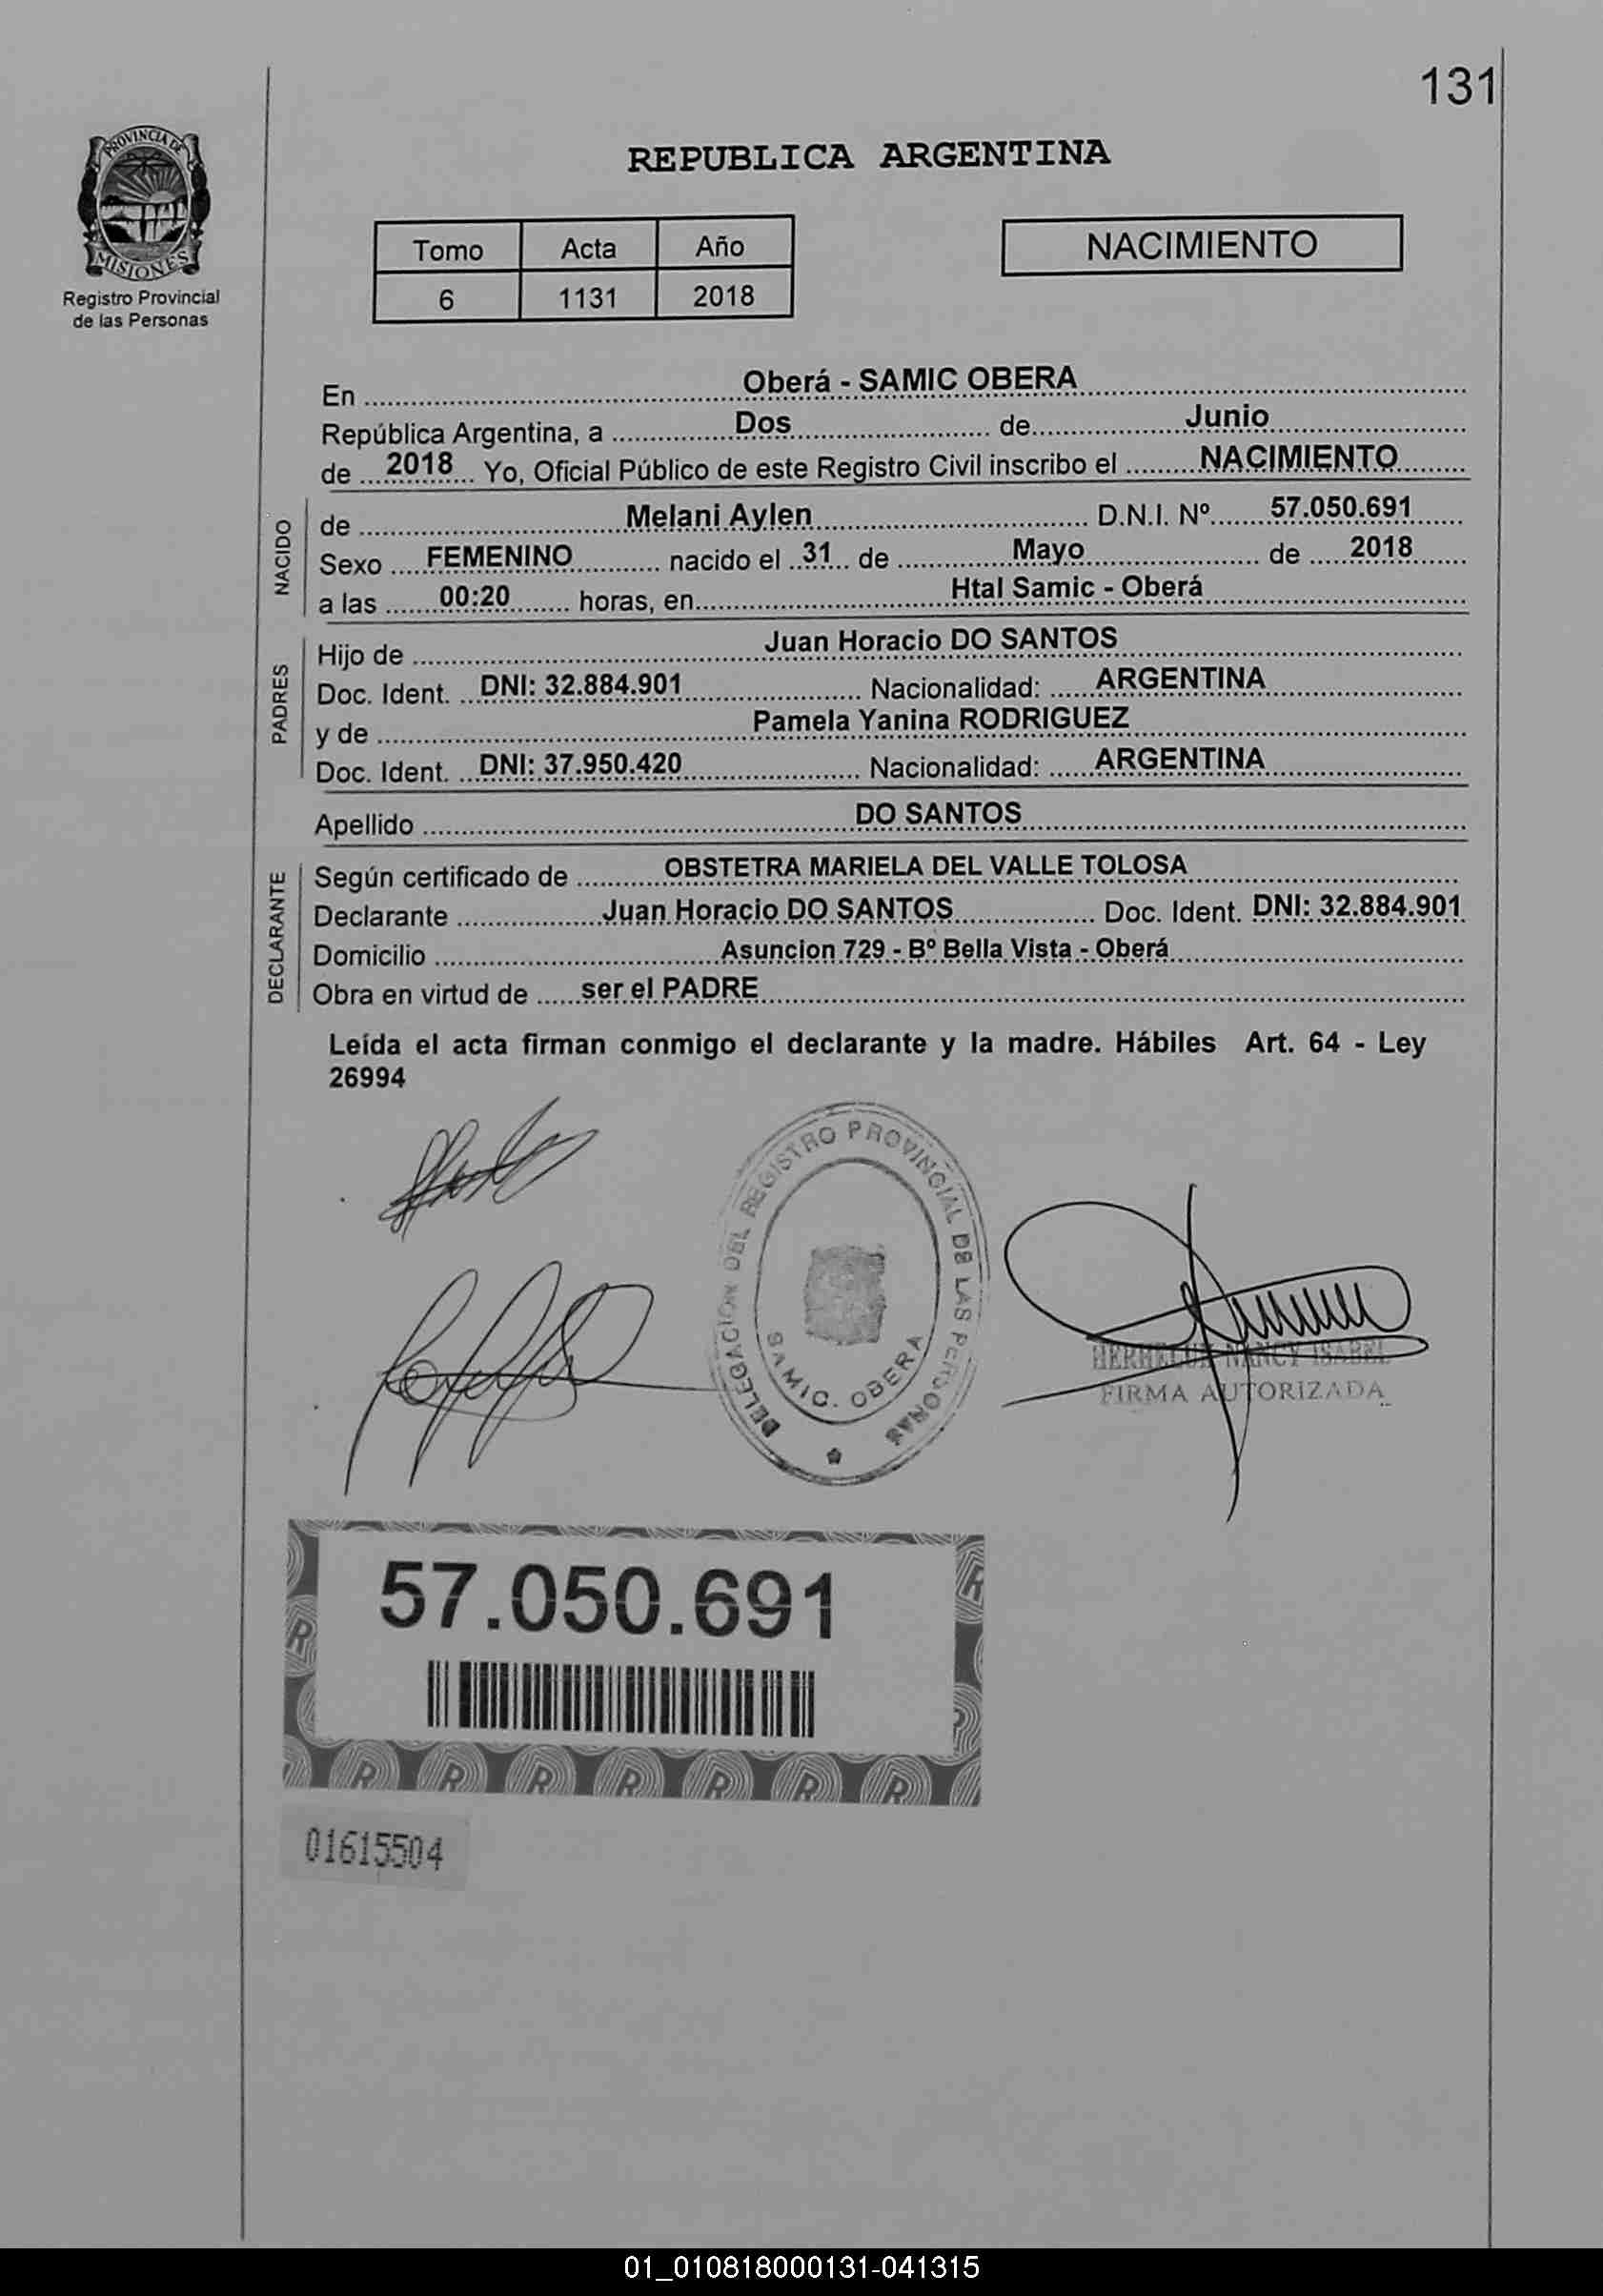 131
PROVINCIA DE
MISIONES
Registro Provincial
de las Personas
REPUBLICA ARGENTINA
Tomo Acta Año
6 1131 2018
NACIMIENTO
En Oberá - SAMIC OBERA
República Argentina, a Dos de Junio
de 2018 Yo, Oficial Público de este Registro Civil inscribo el NACIMIENTO
NACIDO
de Melani Aylen D.N.I. Nº 57.050.691
Sexo FEMENINO nacido el 31 de Mayo de 2018
a las 00:20 horas, en Htal Samic - Oberá
PADRES
Hijo de Juan Horacio DO SANTOS
Doc. Ident. DNI: 32.884.901 Nacionalidad: ARGENTINA
y de Pamela Yanina RODRIGUEZ
Doc. Ident. DNI: 37.950.420 Nacionalidad: ARGENTINA
Apellido DO SANTOS
DECLARANTE
Según certificado de OBSTETRA MARIELA DEL VALLE TOLOSA
Declarante Juan Horacio DO SANTOS Doc. Ident. DNI: 32.884.901
Domicilio Asuncion 729 - Bº Bella Vista - Oberá
Obra en virtud de ser el PADRE
Leída el acta firman conmigo el declarante y la madre. Hábiles Art. 64 - Ley
26994
DELEGACION DEL REGISTRO PROVINCIAL DE LAS PERSONAS
SAMIC. OBERA
NANCY ISABEL
FIRMA AUTORIZADA
57.050.691
R R R R R R R
01615504
01_010818000131-041315